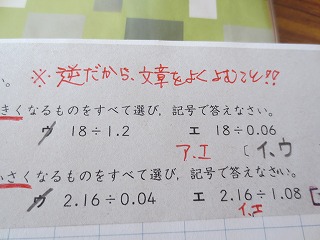 い。 ※逆だから、文章をよくよむこと!!
きくなるものをすべて選び，記号で答えなさい。
ウ 18÷1.2 エ 18÷0.06
ア．エ 〔イ、ウ
いさくなるものをすべて選び，記号で答えなさい。
ウ 2.16÷0.04 エ 2.16÷1.08
イ、エ